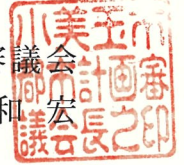 審議会
和宏
小美玉市
都市計画審
議会長之印